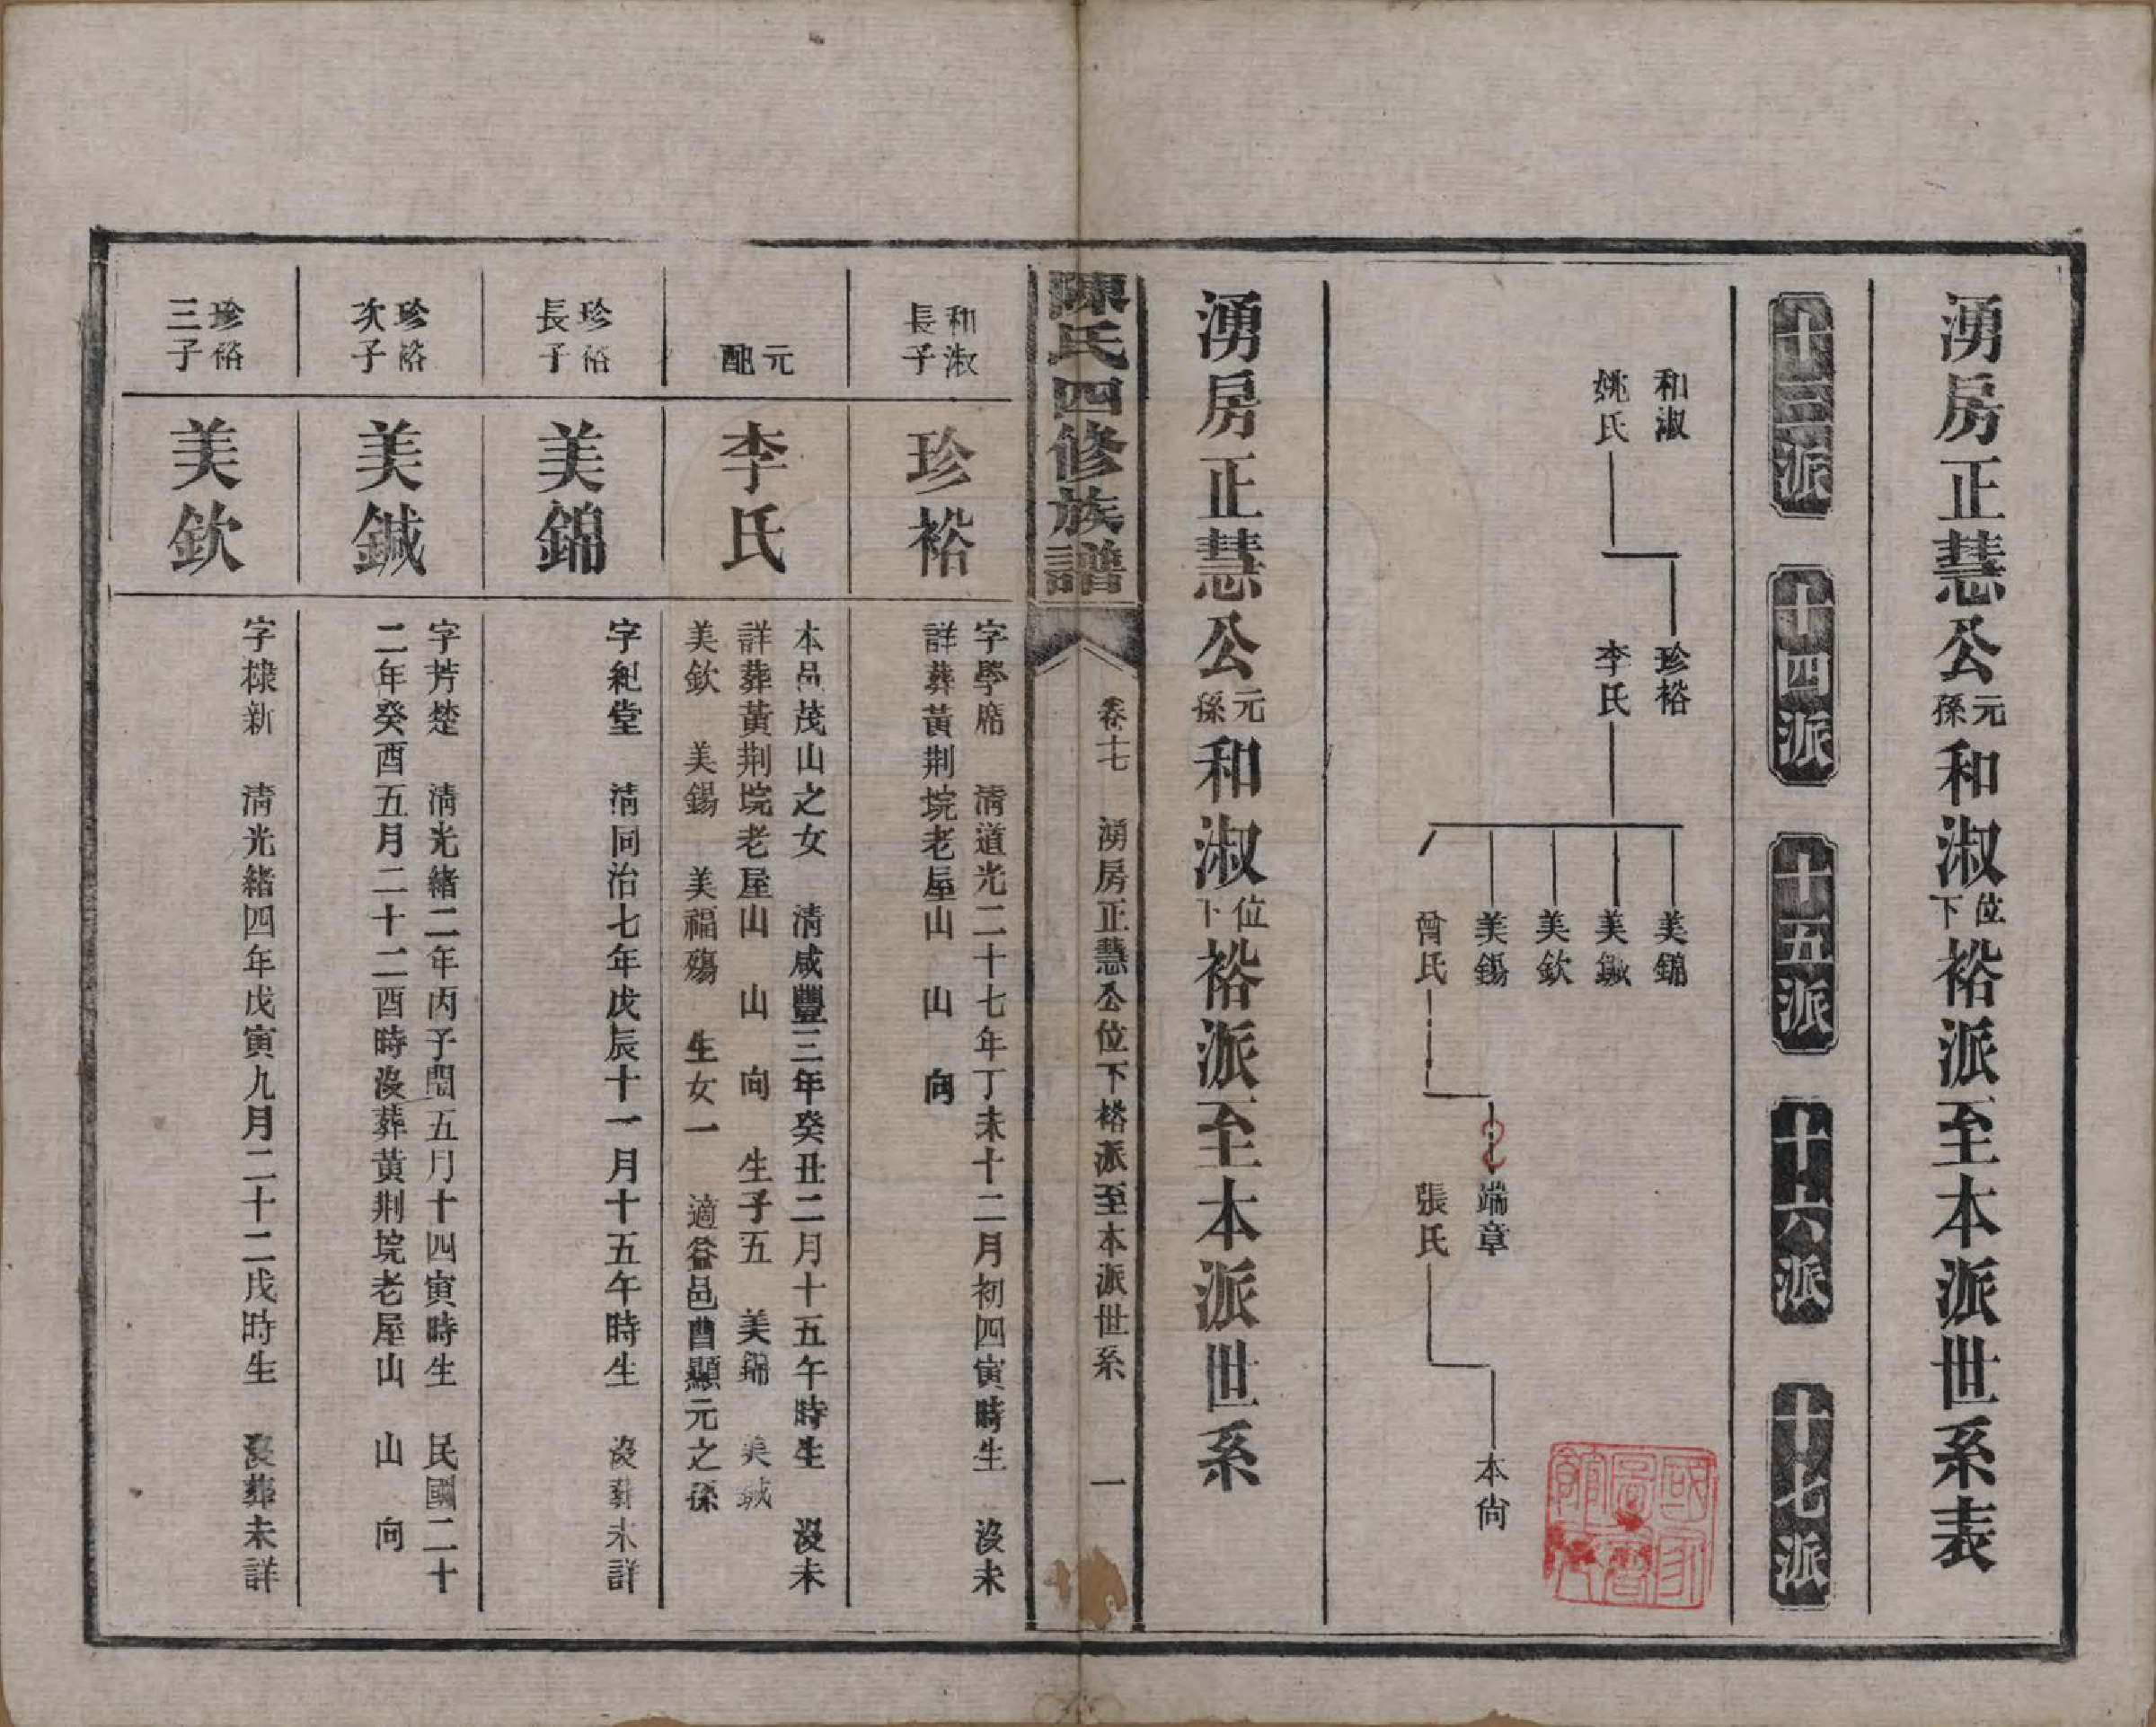 湧房正慧公元孫和淑位下裕派至本派世系表
十三派
十四派
十五派
十六派
十七派
和淑
姚氏
珍裕
李氏
美錦
美鍼
美欽
美錫
曾氏
端章
張氏
本尙
國家圖書館藏
湧房正慧公元孫和淑位下裕派至本派世系
陳氏四修族譜
卷十七
湧房正慧公位下裕派至本派世系
一
和淑長子
珍裕
字學席 清道光二十七年丁未十二月初四寅時生 沒未
詳葬黃荆垸老屋山 山 向
元配
李氏
本邑茂山之女 清咸豐三年癸丑二月十五午時生 沒未
詳葬黃荆垸老屋山 山 向 生子五 美錦 美鍼
美欽 美錫 美福殤 生女一 適益邑曹顯元之孫
珍裕長子
美錦
字紀堂 清同治七年戊辰十一月十五午時生 沒葬未詳
珍裕次子
美鍼
字芳楚 清光緒二年丙子閏五月十四寅時生 民國二十
二年癸酉五月二十二酉時沒葬黃荆垸老屋山 山 向
珍裕三子
美欽
字棣新 清光緒四年戊寅九月二十二戌時生 沒葬未詳